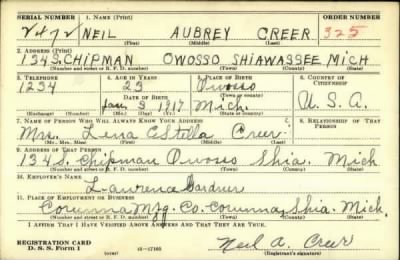 SERIAL NUMBER 1. NAME (Print) ORDER NUMBER
2472 NEIL AUBREY CREER 325
(First) (Middle) (Last)
2. ADDRESS (Print)
134 S. CHIPMAN OWOSSO SHIAWASSEE MICH
(Number and street or R. F. D. number) (Town) (County) (State)
3. TELEPHONE 4. AGE IN YEARS 5. PLACE OF BIRTH 6. COUNTRY OF CITIZENSHIP
1234 23 Owosso
DATE OF BIRTH (Town or county)
Jan. 3 1917 Mich. U.S.A.
(Exchange) (Number) (Mo.) (Day) (Yr.) (State or country)
7. NAME OF PERSON WHO WILL ALWAYS KNOW YOUR ADDRESS 8. RELATIONSHIP OF THAT PERSON
Mrs. Lena Estella Creer
(Mr., Mrs., Miss) (First) (Middle) (Last)
9. ADDRESS OF THAT PERSON
134 S. Chipman Owosso Shia. Mich
(Number and street or R. F. D. number) (Town) (County) (State)
10. EMPLOYER'S NAME
Lawrence Gardner
11. PLACE OF EMPLOYMENT OR BUSINESS
Corunna Mfg. Co. Corunna, Shia. Mich.
(Number and street or R. F. D. number) (Town) (County) (State)
I AFFIRM THAT I HAVE VERIFIED ABOVE ANSWERS AND THAT THEY ARE TRUE.
REGISTRATION CARD
D. S. S. Form 1 16—17105 Neil A. Creer
(Registrant's signature)